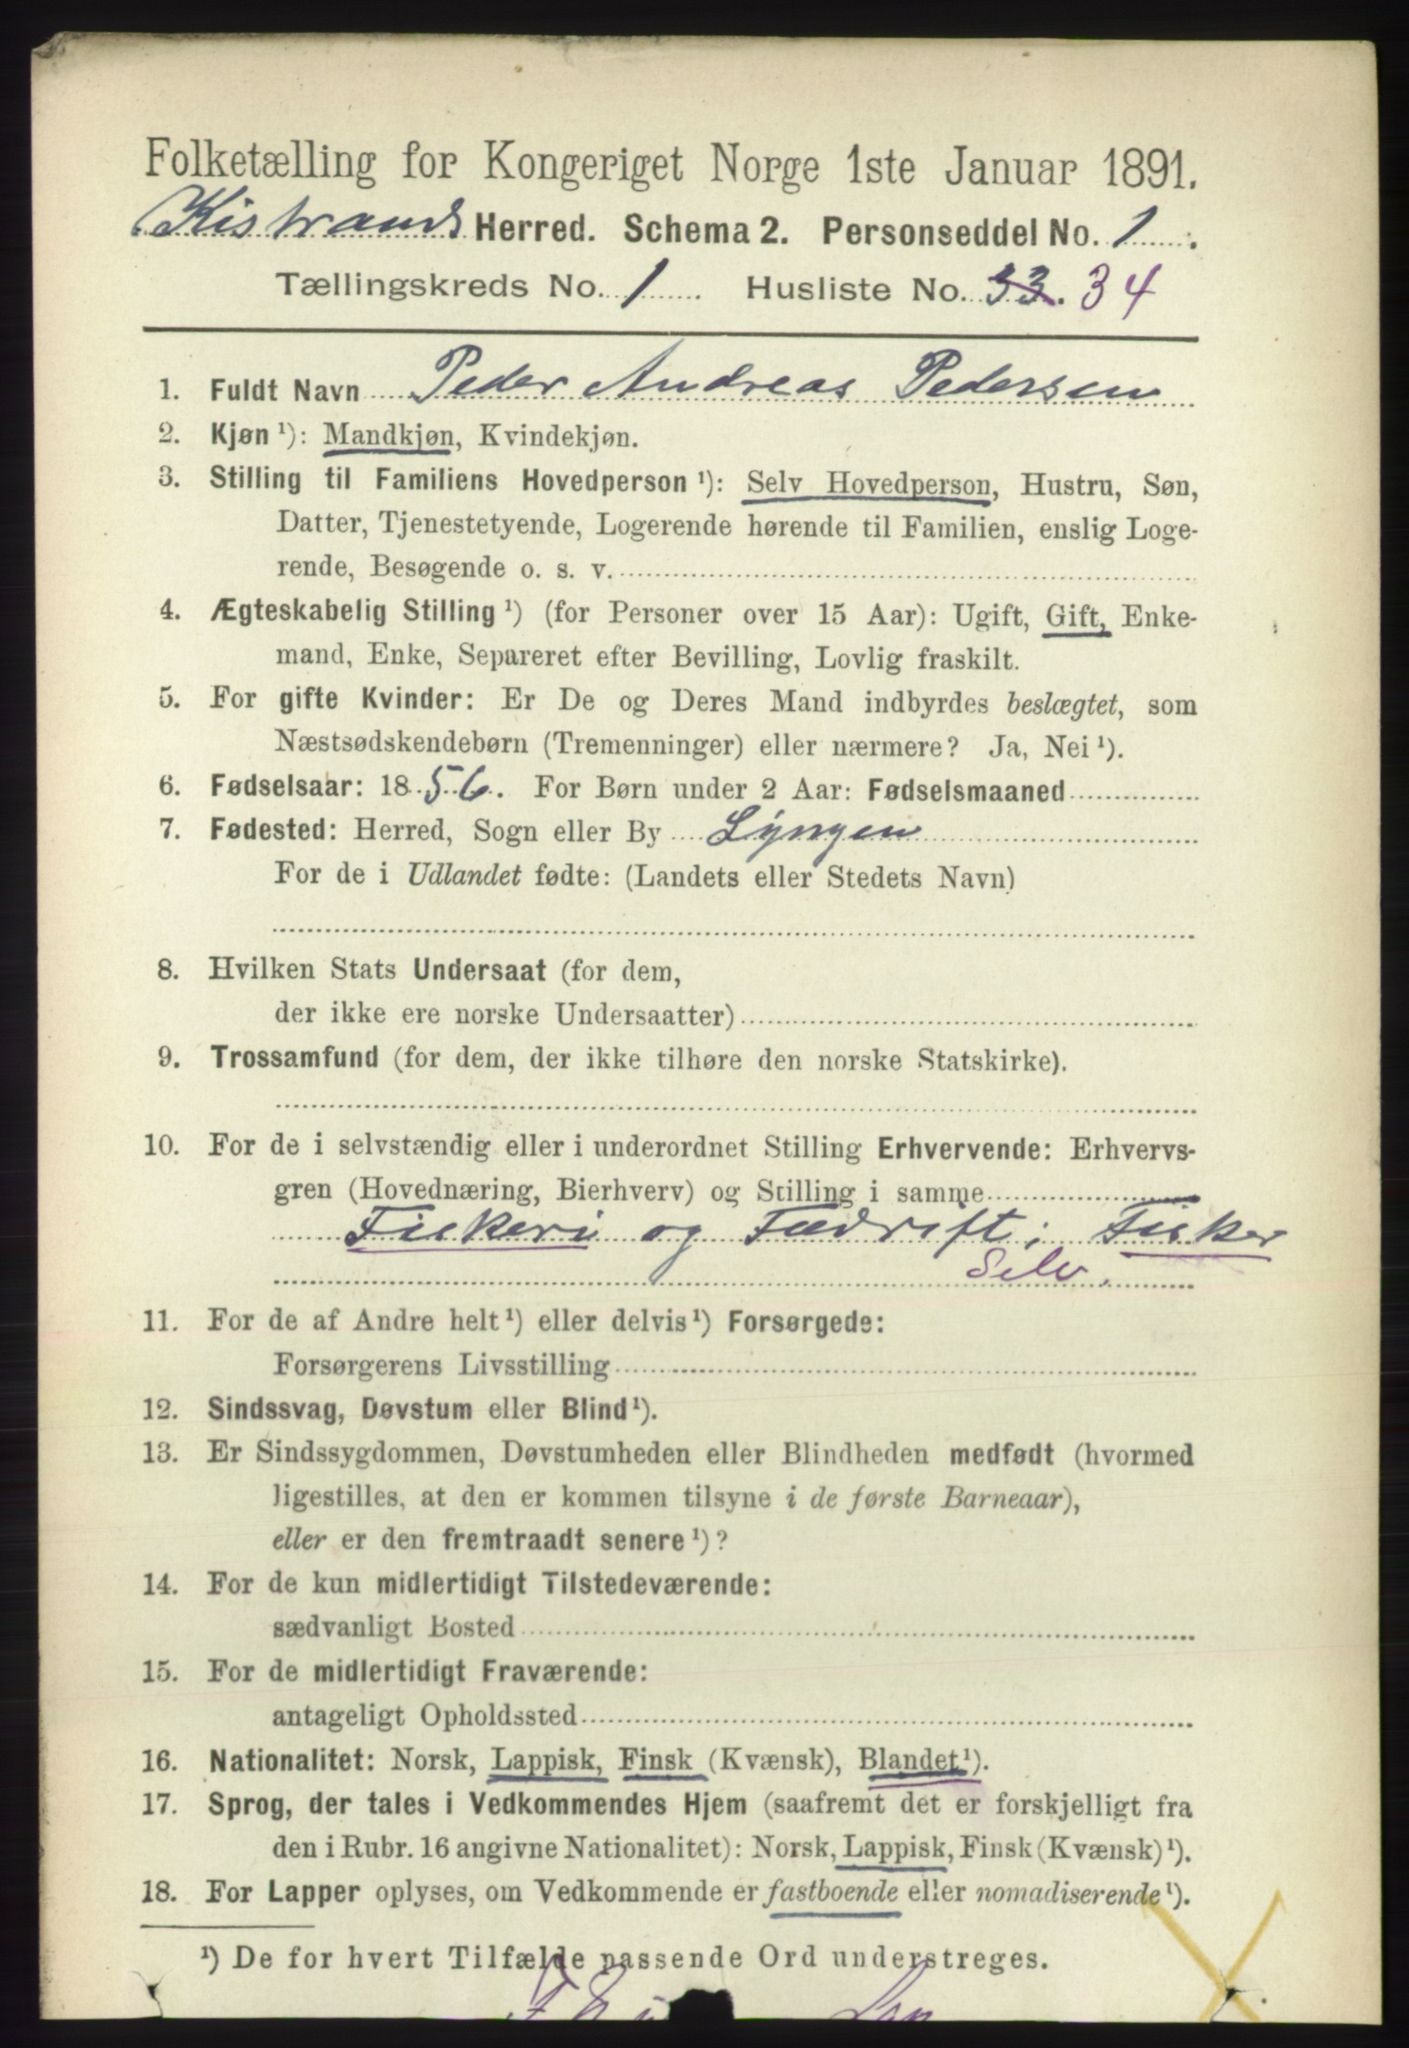 Folketælling for Kongeriget Norge 1ste Januar 1891.
Kistrand Herred. Schema 2. Personseddel No. 1
Tællingskreds No. 1 Husliste No. 33. 34
1. Fuldt Navn Peder Andreas Pedersen
2. Kjøn ¹): Mandkjøn, Kvindekjøn.
3. Stilling til Familiens Hovedperson ¹): Selv Hovedperson, Hustru, Søn,
Datter, Tjenestetyende, Logerende hørende til Familien, enslig Loge-
rende, Besøgende o. s. v.
4. Ægteskabelig Stilling ¹) (for Personer over 15 Aar): Ugift, Gift, Enke-
mand, Enke, Separeret efter Bevilling, Lovlig fraskilt.
5. For gifte Kvinder: Er De og Deres Mand indbyrdes beslægtet, som
Næstsødskendebørn (Tremenninger) eller nærmere? Ja, Nei ¹).
6. Fødselsaar: 1856. For Børn under 2 Aar: Fødselsmaaned
7. Fødested: Herred, Sogn eller By Lyngen
For de i Udlandet fødte: (Landets eller Stedets Navn)
8. Hvilken Stats Undersaat (for dem,
der ikke ere norske Undersaatter)
9. Trossamfund (for dem, der ikke tilhøre den norske Statskirke).
10. For de i selvstændig eller i underordnet Stilling Erhvervende: Erhvervs-
gren (Hovednæring, Bierhverv) og Stilling i samme
Fiskeri og Fædrift; Fisker
Selv.
11. For de af Andre helt ¹) eller delvis ¹) Forsørgede:
Forsørgerens Livsstilling
12. Sindssvag, Døvstum eller Blind ¹).
13. Er Sindssygdommen, Døvstumheden eller Blindheden medfødt (hvormed
ligestilles, at den er kommen tilsyne i de første Barneaar),
eller er den fremtraadt senere ¹)?
14. For de kun midlertidigt Tilstedeværende:
sædvanligt Bosted
15. For de midlertidigt Fraværende:
antageligt Opholdssted
16. Nationalitet: Norsk, Lappisk, Finsk (Kvænsk), Blandet ¹).
17. Sprog, der tales i Vedkommendes Hjem (saafremt det er forskjelligt fra
den i Rubr. 16 angivne Nationalitet): Norsk, Lappisk, Finsk (Kvænsk) ¹).
18. For Lapper oplyses, om Vedkommende er fastboende eller nomadiserende ¹).
¹) De for hvert Tilfælde passende Ord understreges.